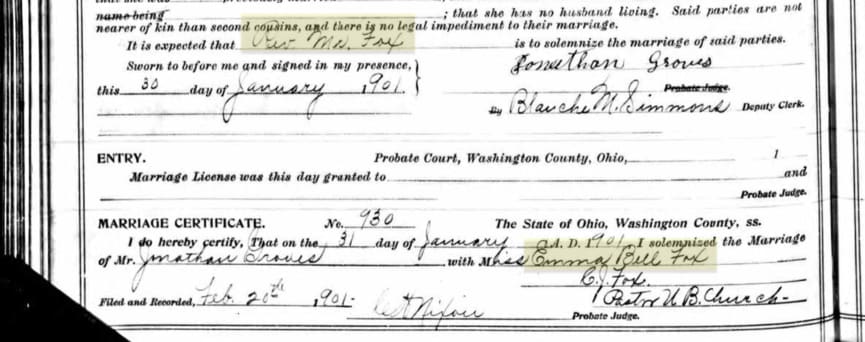 name being ; that she has no husband living. Said parties are not
nearer of kin than second cousins, and there is no legal impediment to their marriage.
It is expected that Rev. Mr. Fox is to solemnize the marriage of said parties.
Sworn to before me and signed in my presence, Jonathan Groves
this 30 day of January, 1901. Probate Judge.
By Blanche M. Simmons Deputy Clerk.
ENTRY. Probate Court, Washington County, Ohio, 1
Marriage License was this day granted to and
Probate Judge.
MARRIAGE CERTIFICATE. No. 930 The State of Ohio, Washington County, ss.
I do hereby certify, That on the 31 day of January A. D. 1901, I solemnized the Marriage
of Mr. Jonathan Groves with Miss Emma Bell Fox
C. J. Fox.
Filed and Recorded, Feb. 20th, 1901- Pastor U. B. Church-
Nixon Probate Judge.